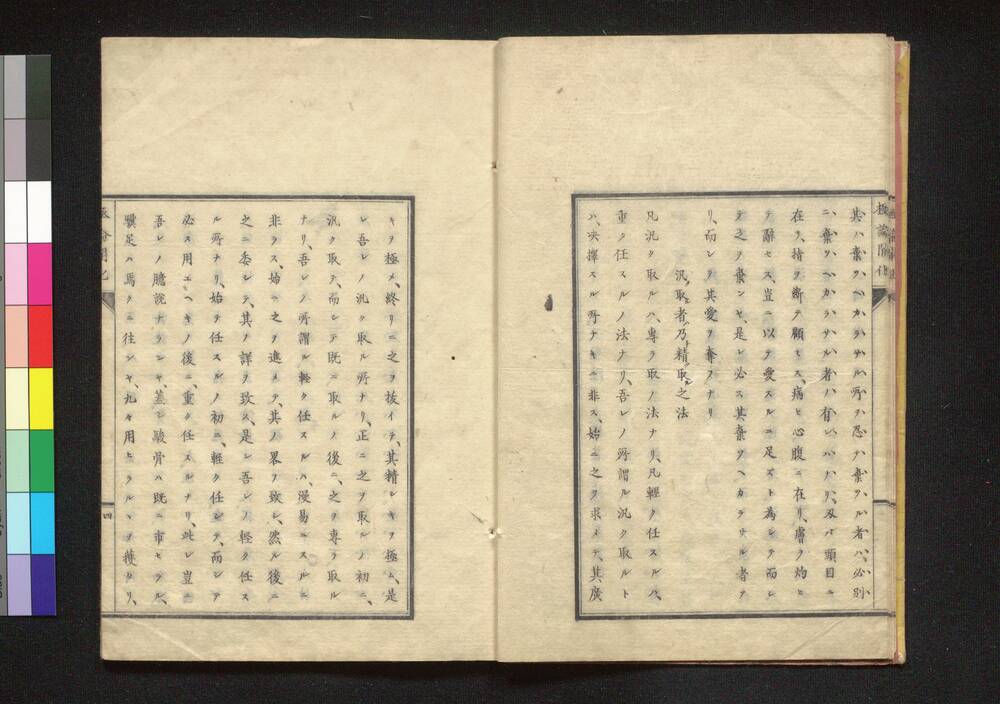 其ハ棄ツヘカラサル所ヲ忍テ棄ツル者ハ、必別
ニ、棄ツヘカラサル者ハ有レハナリ、刃ハ頭目ニ
在リ、持ヲ断テ顧ミス、病ヒ心腹ニ在リ、膚ヲ灼ヒ
テ辭セス、豈ニ以テ愛スルニ足ズト為シテ而シ
テ之ヲ棄ンヤ、是レ必ス其棄ツヘカラサル者ア
リ、而シテ其愛ヲ奪フナリ
汎取者乃精取之法
凡汎ク取ルハ、専ラ取ノ法ナリ、凡輕ク任スルハ、
重ク任スルノ法ナリ、吾レノ所謂ル汎ク取ルト
ハ、决擇スル所ナキニ非ス、始ニ之ヲ求メテ、其廣
キヲ極メ、終リニ之ヲ抜イテ、其精シキヲ極ム、是
レ吾レノ汎ク取ル所ナリ、正ニ之ヲ取ルノ初ニ、
汎ク取テ、而シテ既ニ取ルノ後ニ、之ヲ專ラ取ル
ナリ、吾レノ所謂ル輕ク任スルハ、漫易ニスルニ
非ラス、始ニ之ヲ進メテ、其ノ畧ヲ致シ、然ル後ニ
之ニ委シテ、其ノ詳ヲ致ス、是レ吾レノ輕ク任ス
ル所ナリ、始テ任スルノ初ニ、輕ク任シテ、而シテ
必ス用ユヘキノ後ニ、重ク任スルナリ、此レ豈ニ
吾レノ臆説ナランヤ、蓋シ駿骨ハ既ニ市セラル、
驥足ハ焉クニ往シヤ、九々用ヒラルヽヲ獲タリ、
四